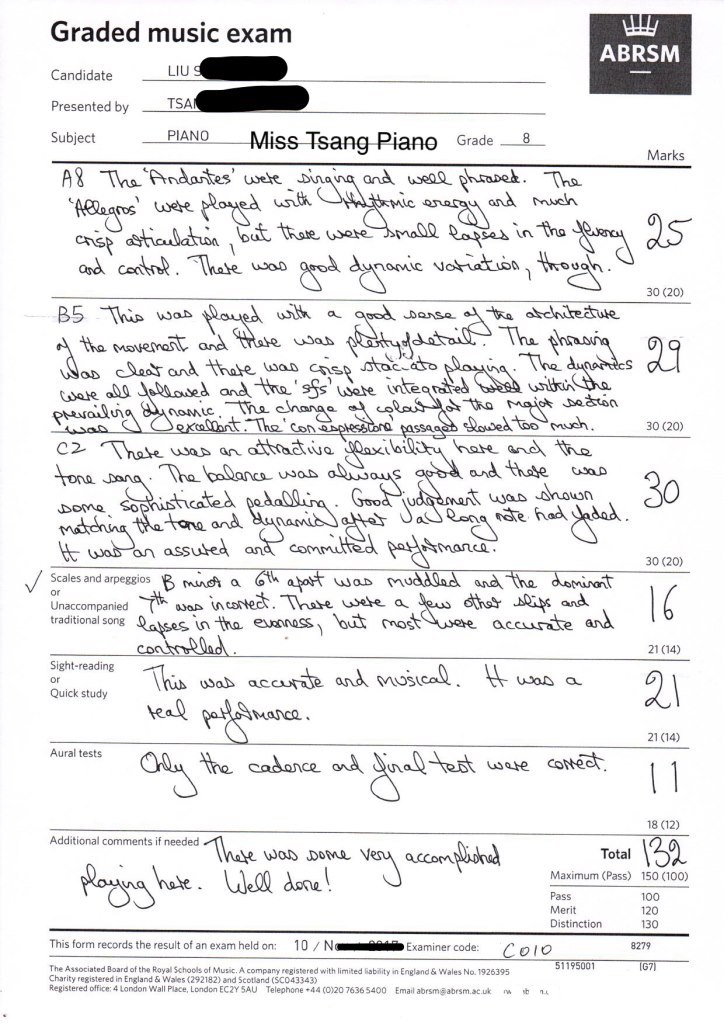 Graded music exam
ABRSM
Candidate LIU S
Presented by TSA
Subject PIANO Miss Tsang Piano Grade 8
Marks
A8 The 'Andantes' were singing and well phrased. The
'Allegros' were played with rhythmic energy and much
crisp articulation, but there were small lapses in the fluency
and control. There was good dynamic variation, though.
25
30 (20)
B5 This was played with a good sense of the architecture
of the movement and there was plenty of detail. The phrasing
was clear and there was crisp staccato playing. The dynamics
were all followed and the 'sfs' were integrated well within the
prevailing dynamic. The change of colour for the major section
was excellent. The 'con espressione' passages slowed too much.
29
30 (20)
C2 There was an attractive flexibility here and the
tone sang. The balance was always good and there was
some sophisticated pedalling. Good judgement was shown
matching the tone and dynamic after a long note had faded.
It was an assured and committed performance.
30
30 (20)
Scales and arpeggios
or
Unaccompanied
traditional song
B minor a 6th apart was muddled and the dominant
7th was incorrect. There were a few other slips and
lapses in the evenness, but most were accurate and
controlled.
16
21 (14)
Sight-reading
or
Quick study
This was accurate and musical. It was a
real performance.
21
21 (14)
Aural tests
Only the cadence and final test were correct.
11
18 (12)
Additional comments if needed
There was some very accomplished
playing here. Well done!
Total 132
Maximum (Pass) 150 (100)
Pass 100
Merit 120
Distinction 130
This form records the result of an exam held on: 10 / No Examiner code: C010 8279
51195001 (G7)
The Associated Board of the Royal Schools of Music. A company registered with limited liability in England & Wales No. 1926395
Charity registered in England & Wales (292182) and Scotland (SC043343)
Registered office: 4 London Wall Place, London EC2Y 5AU Telephone +44 (0)20 7636 5400 Email abrsm@abrsm.ac.uk